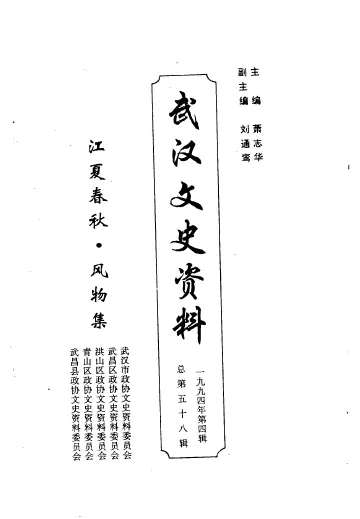 主编 萧志华
副主编 刘通鸾
武汉文史资料
一九九四年第四辑
总第五十八辑
江夏春秋·风物集
武汉市政协文史资料委员会
武昌区政协文史资料委员会
洪山区政协文史资料委员会
青山区政协文史资料委员会
武昌县政协文史资料委员会